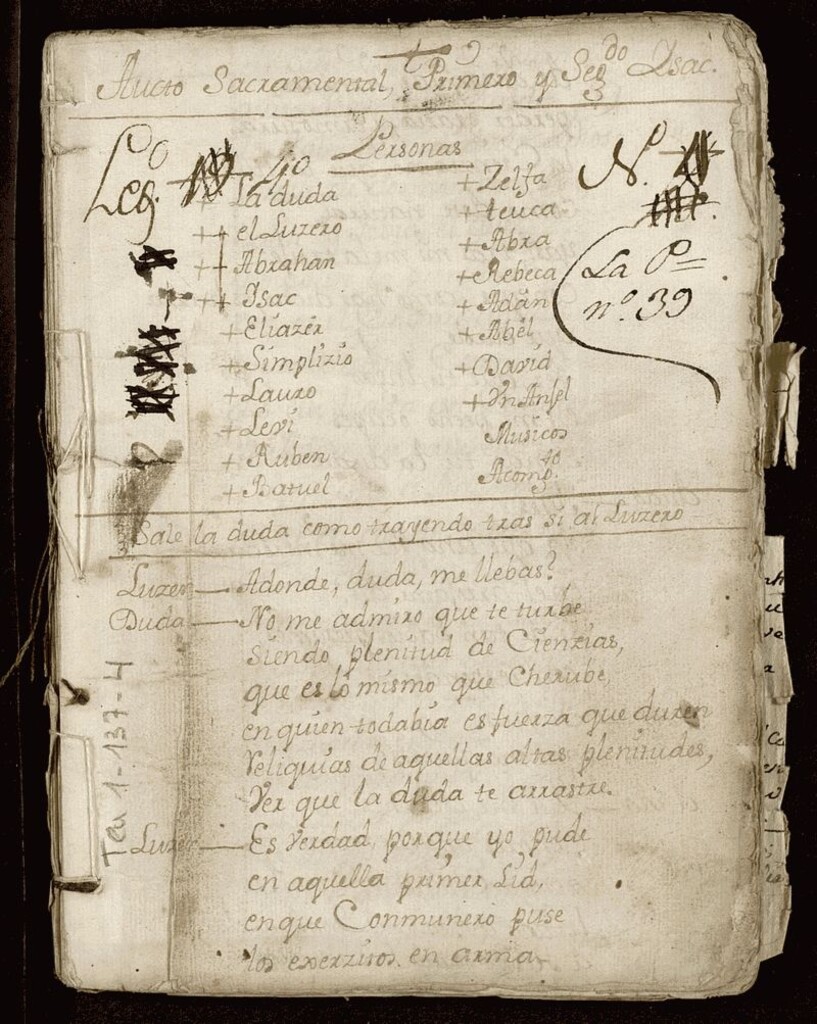 Aucto Sacramental, Primero y Seg.do Ysac.
Personas
Leg.o 40
N.
La P.=
n.o 39
+ La duda
++ el Luzero
++ Abrahan
++ Isac
+ Eliazer
+ Simplizio
+ Lauro
+ Levi
+ Ruben
+ Batuel
+ Zelfa
+ teuca
+ Abra
+ Rebeca
+ Adán
+ Abel
+ David
+ Vn Anjel
Musicos
Acomp.to
Sale la duda como trayendo tras si al Luzero
Luzer — Adonde, duda, me llebas?
Duda — No me admiro que te turbe
siendo plenitud de Cienzias,
que es lo mismo que Cherube,
en quien todabia es fuerza que duren
Reliquias de aquellas altas plenitudes,
Ver que la duda te arrastre.
Luzer — Es Verdad, porque yo pude
en aquella primer Lid,
en que Conmunero puse
los exerzitos en arma
Tea 1-137-4